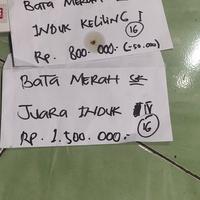 BATA MERAH
INDUK KELILING I
16
RP. 800.000.- (-50.000)
BATA MERAH
JUARA INDUK IV
16
RP. 1.500.000.-